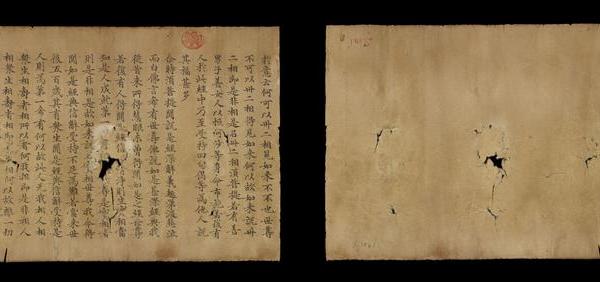 於意云何可以卅二相見如來不不也世尊
不可以卅二相得見如來何以故如來說卅
二相即是非相是名卅二相須菩提若有善
男子善女人以恒河沙等身命布施若復有
人於此經中乃至受持四句偈等為他人說
其福甚多
尒時須菩提聞說是經深解義趣涕淚悲泣
而白佛言希有世尊佛說如是甚深經典我
從昔來所得慧眼未曾得聞如是之經世尊
若復有人得聞是經信則生實相當
知是人成就第一是實相者
則是非相是故如世尊我今得
聞如是經典信解受持不足為難若當來世
後五百歲其有衆生得聞是經信解受持是
人則為第一希有何以故此人无我相人相
衆生相壽者相所以者何我相即是非相人
相衆生相壽者相即是非相何以故離一切